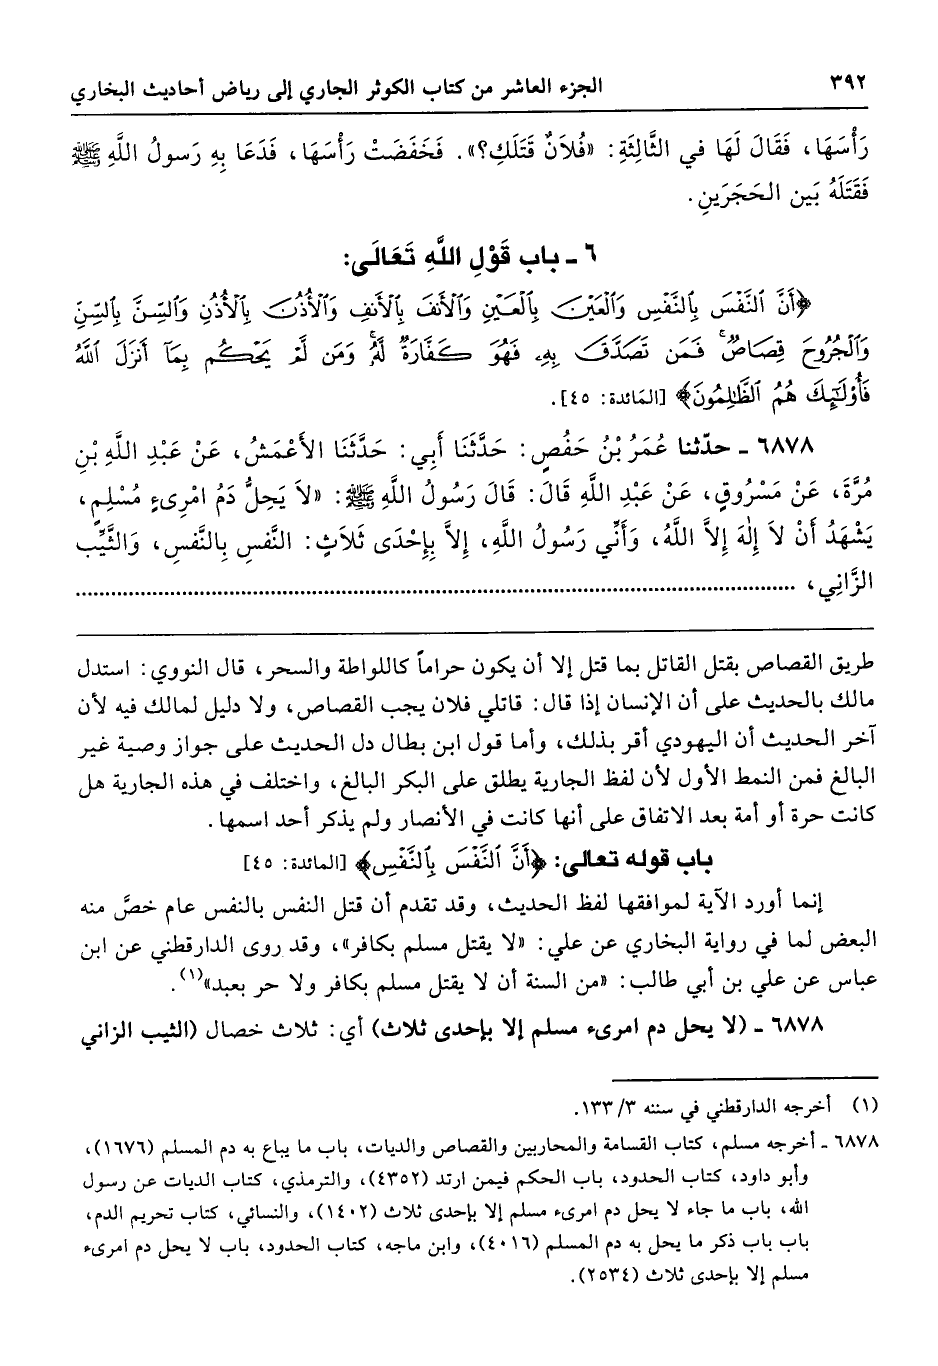 ٣٩٢
الجزء العاشر من كتاب الكوثر الجاري إلى رياض أحاديث البخاري
رَأْسَهَا، فَقَالَ لَهَا في الثَّالِثَةِ: «فُلَانٌ قَتَلَكِ؟». فَخَفَضَتْ رَأْسَهَا، فَدَعَا بِهِ رَسولُ اللَّهِ ﷺ
فَقَتَلَهُ بَين الحَجَرَينِ.
٦ ـ باب قَوْلِ اللَّهِ تَعَالَى:
﴿أَنَّ ٱلنَّفْسَ بِٱلنَّفْسِ وَٱلْعَيْنَ بِٱلْعَيْنِ وَٱلْأَنفَ بِٱلْأَنفِ وَٱلْأُذُنَ بِٱلْأُذُنِ وَٱلسِّنَّ بِٱلسِّنِّ
وَٱلْجُرُوحَ قِصَاصٌ ۚ فَمَن تَصَدَّقَ بِهِۦ فَهُوَ كَفَّارَةٌ لَّهُۥ ۚ وَمَن لَّمْ يَحْكُم بِمَآ أَنزَلَ ٱللَّهُ
فَأُوْلَـٰٓئِكَ هُمُ ٱلظَّالِمُونَ﴾ [المَائدة: ٤٥].
٦٨٧٨ ـ حدّثنا عُمَرُ بْنُ حَفْصٍ: حَدَّثَنَا أَبِي: حَدَّثَنَا الأَعْمَشُ، عَنْ عَبْدِ اللَّهِ بْنِ
مُرَّةَ، عَنْ مَسْرُوقٍ، عَنْ عَبْدِ اللَّهِ قَالَ: قَالَ رَسُولُ اللَّهِ ﷺ: «لاَ يَحِلُّ دَمُ امْرِىءٍ مُسْلِمٍ،
يَشْهَدُ أَنْ لاَ إِلٰهَ إِلاَّ اللَّهُ، وَأَنِّي رَسُولُ اللَّهِ، إِلاَّ بِإِحْدَى ثَلاَثٍ: النَّفْسِ بِالنَّفْسِ، وَالثَّيِّب
الزَّانِي، ........................................................................
طريق القصاص بقتل القاتل بما قتل إلا أن يكون حراماً كاللواطة والسحر، قال النووي: استدل
مالك بالحديث على أن الإنسان إذا قال: قاتلي فلان يجب القصاص، ولا دليل لمالك فيه لأن
آخر الحديث أن اليهودي أقر بذلك، وأما قول ابن بطال دل الحديث على جواز وصية غير
البالغ فمن النمط الأول لأن لفظ الجارية يطلق على البكر البالغ، واختلف في هذه الجارية هل
كانت حرة أو أمة بعد الاتفاق على أنها كانت في الأنصار ولم يذكر أحد اسمها.
باب قوله تعالى: ﴿أَنَّ ٱلنَّفْسَ بِٱلنَّفْسِ﴾ [المائدة: ٤٥]
إنما أورد الآية لموافقها لفظ الحديث، وقد تقدم أن قتل النفس بالنفس عام خصَّ منه
البعض لما في رواية البخاري عن علي: «لا يقتل مسلم بكافر»، وقد روى الدارقطني عن ابن
عباس عن علي بن أبي طالب: «من السنة أن لا يقتل مسلم بكافر ولا حر بعبد»(١).
٦٨٧٨ ـ (لا يحل دم امرىء مسلم إلا بإحدى ثلاث) أي: ثلاث خصال (الثيب الزاني
(١) أخرجه الدارقطني في سننه ٣/ ١٣٣.
٦٨٧٨ ـ أخرجه مسلم، كتاب القسامة والمحاربين والقصاص والديات، باب ما يباع به دم المسلم (١٦٧٦)،
وأبو داود، كتاب الحدود، باب الحكم فيمن ارتد (٤٣٥٢)، والترمذي، كتاب الديات عن رسول
الله، باب ما جاء لا يحل دم امرىء مسلم إلا بإحدى ثلاث (١٤٠٢)، والنسائي، كتاب تحريم الدم،
باب باب ذكر ما يحل به دم المسلم (٤٠١٦)، وابن ماجه، كتاب الحدود، باب لا يحل دم امرىء
مسلم إلا بإحدى ثلاث (٢٥٣٤).